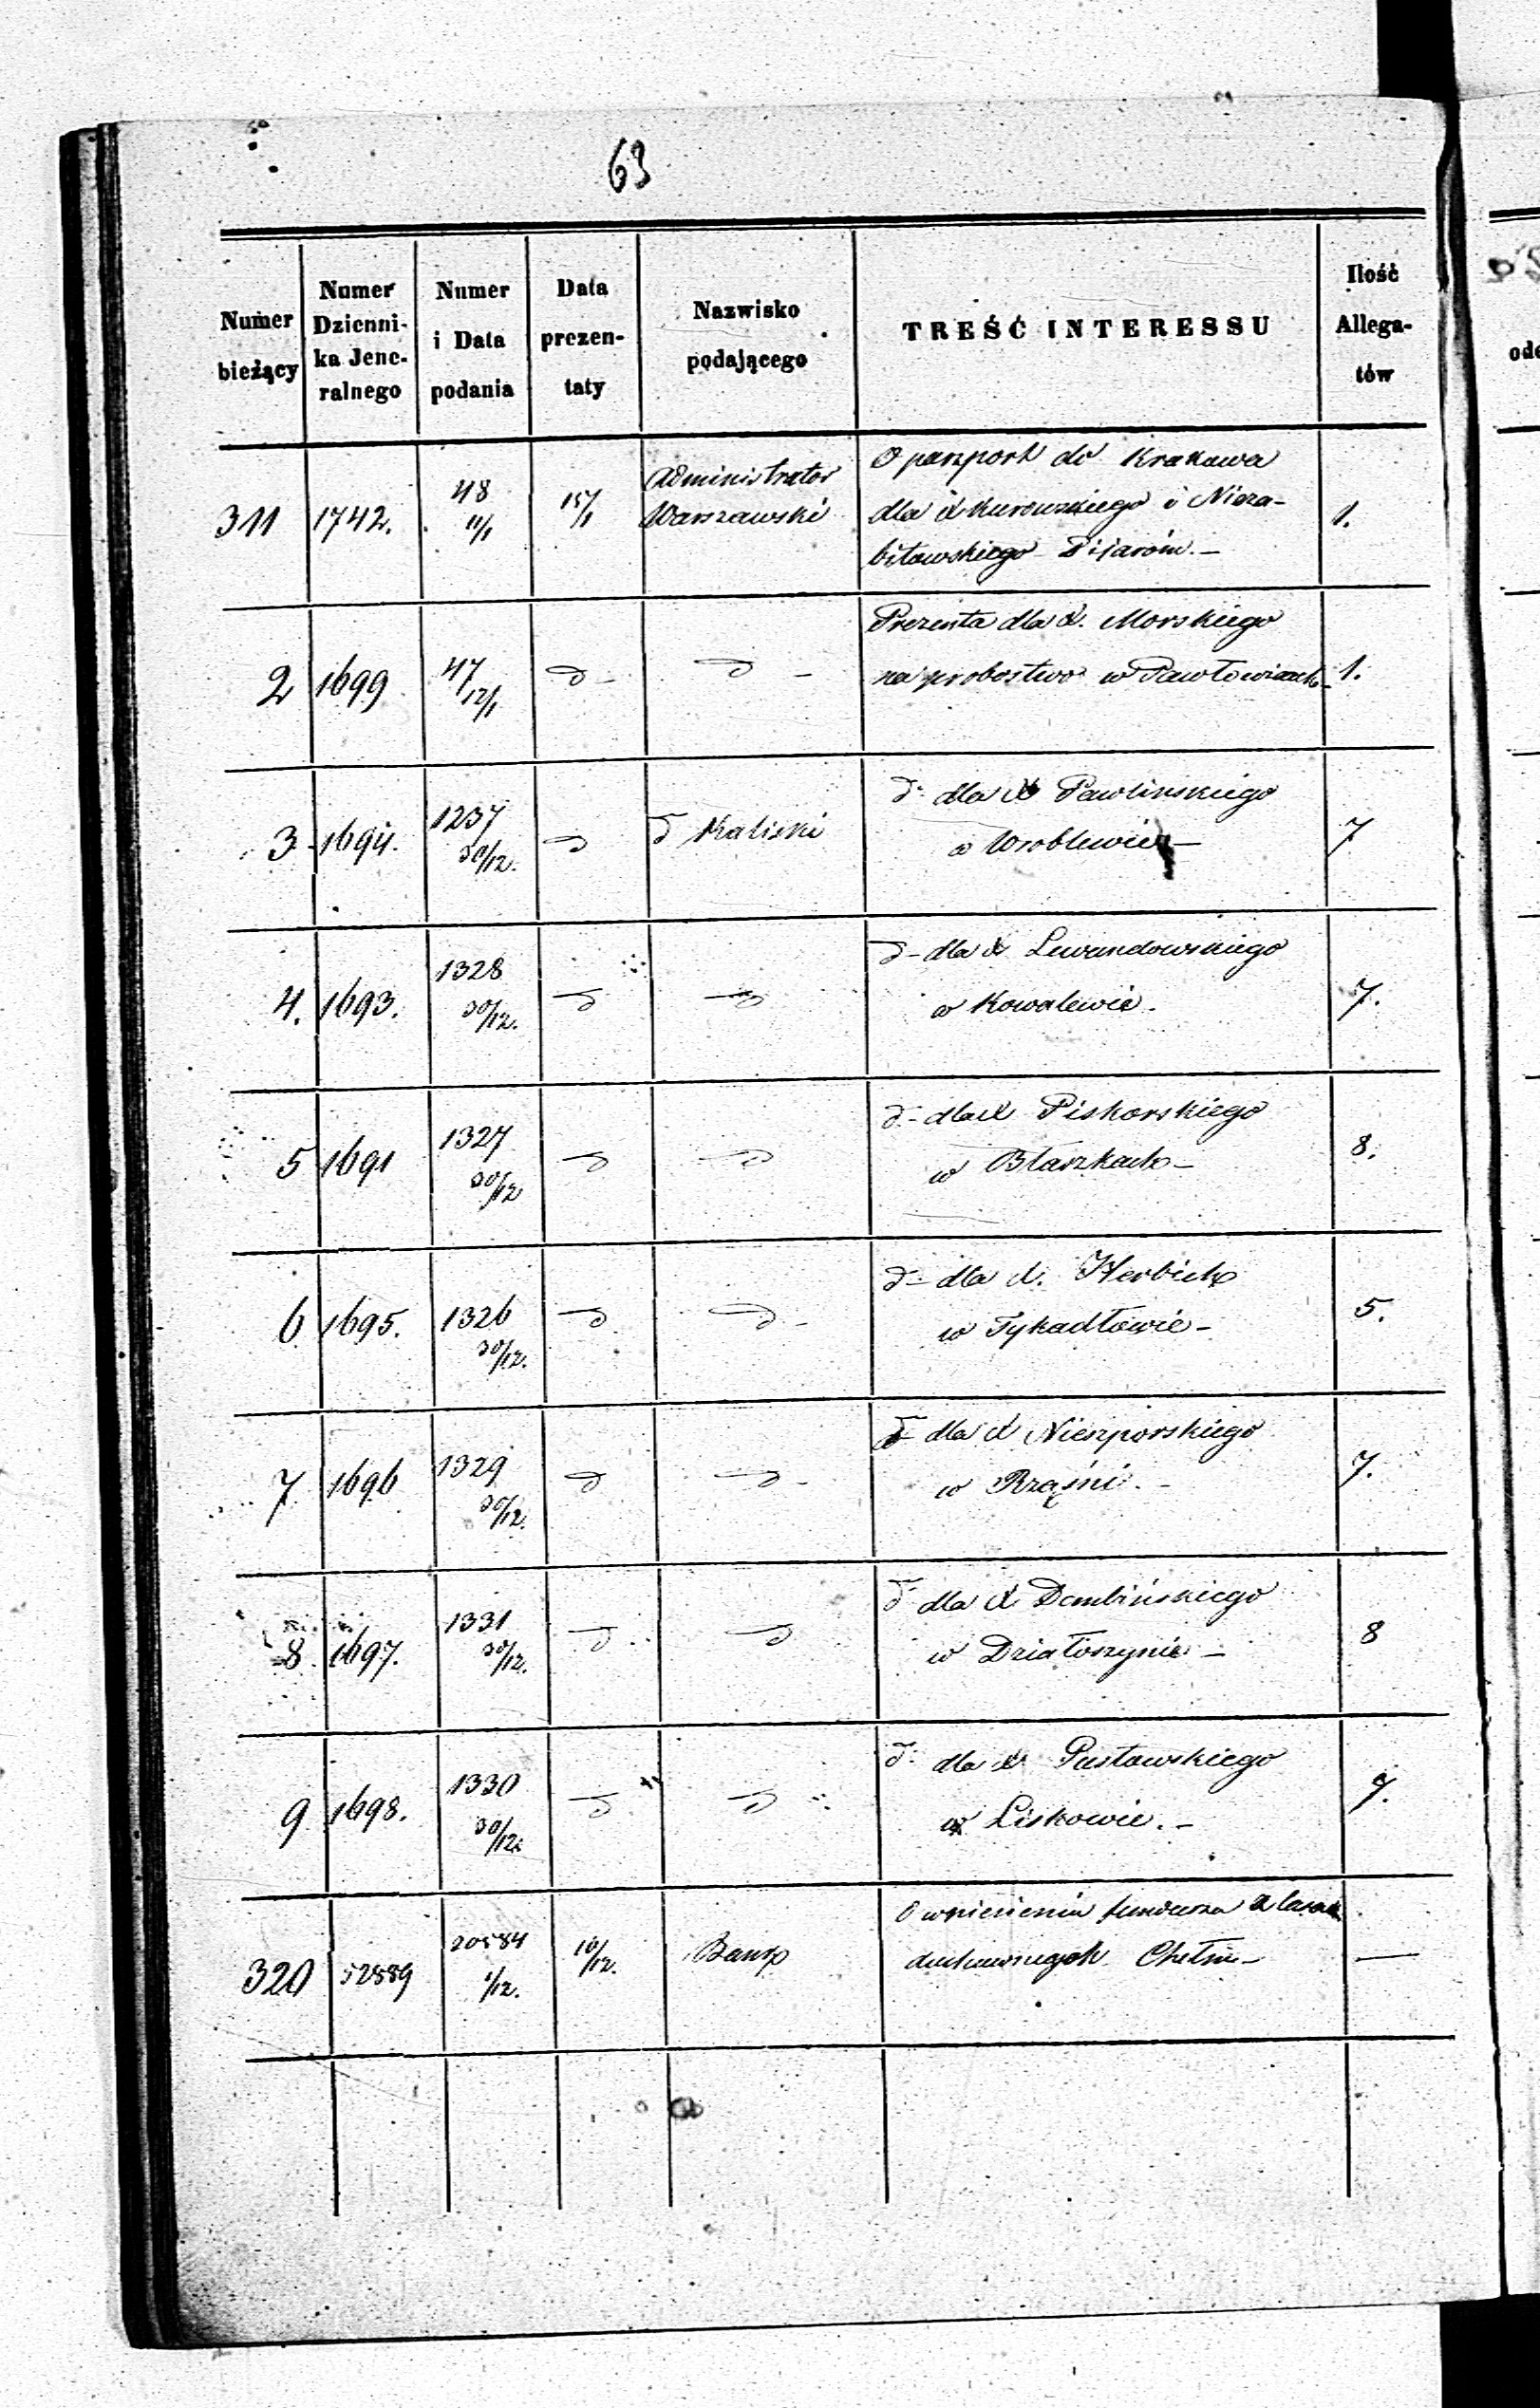 63
Numer bieżący | Numer Dzienni- ka Jene- ralnego | Numer i Data podania | Data prezen- taty | Nazwisko podającego | TREŚĆ INTERESSU | Ilość Allega- tów
311 | 1742. | 48 11/1 | 15/1 | Administrator Warszawski | O paszport do Krakowa
dla X Kurowskiego i Nieza-
bitowskiego Pijarów. — | 1.
2 | 1699 | 47 12/1 | d | d — | Prezenta dla X. Morskiego
na probostwo w Pawłowicach | 1.
3 | 1694. | 1237 30/12. | d | d Kaliski | d dla X Pawlinskiego
w Wroblewie — | 7
4. | 1693. | 1328 30/12. | d | d | d – dla X Lewandowskiego
w Kowalewie. | 7.
5 | 1691 | 1327 30/12 | d | d | d – dla X Piskorskiego
w Błaszkach – | 8.
6 | 1695. | 1326 30/12. | d | d – | d – dla X. Herbich
w Tykadłowie – | 5.
7 | 1696 | 1329 30/12. | d | d – | d dla X Nieszporskiego
w Rząśni. – | 7.
8 | 1697. | 1331 30/12. | d | d | d dla X Dembińskiego
w Działoszynie — | 8
9 | 1698. | 1330 30/12. | d | d | d dla X Pustowskiego
w Liskowie. – | 7.
320 | 52889 | 20584 1/12. | 16/12. | Bank | O wniesieniu funduszu z lasów
duchownych Chełm – | —
ode